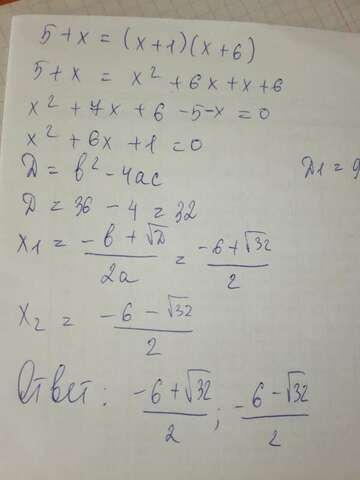 5+x = (x+1)(x+6)
5+x = x² + 6x + x + 6
x² + 7x + 6 - 5 - x = 0
x² + 6x + 1 = 0
D = b² - 4ac
D1 = 9
D = 36 - 4 = 32
x1 = (-b + √D)/2a = (-6 + √32)/2
x2 = (-6 - √32)/2
Ответ: (-6 + √32)/2 ; (-6 - √32)/2